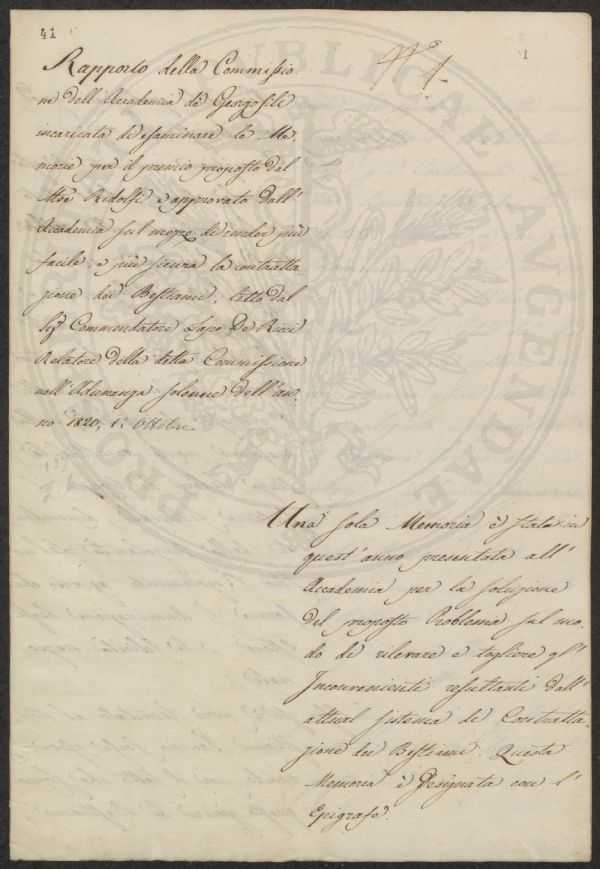 41
1
N. 1.
Rapporto della Commissio-
ne dell'Accademia de Georgofili
incaricata di esaminare le Me-
morie per il premio proposto dal
Mse Ridolfi e approvato dall'
Accademia sul mezzo di render più
facile, e più sicura la contratta-
zione dei Bestiami, letto dal
Sig Commendatore Lapo De Ricci
Relatore della detta Commissione
nell'Adunanza solenne dell'an-
no 1820, 1° Ottobre
Una sola Memoria è stata in
quest'anno presentata all'
Accademia per la soluzione
del proposto Problema sul mo-
do di rilevare e togliere gl'
Inconvenienti resultanti dall'
attual sistema di Contratta-
zione dei Bestiami. Questa
Memoria è Designata con l'
Epigrafe.
PUBLICAE
AUGENDAE
PRO